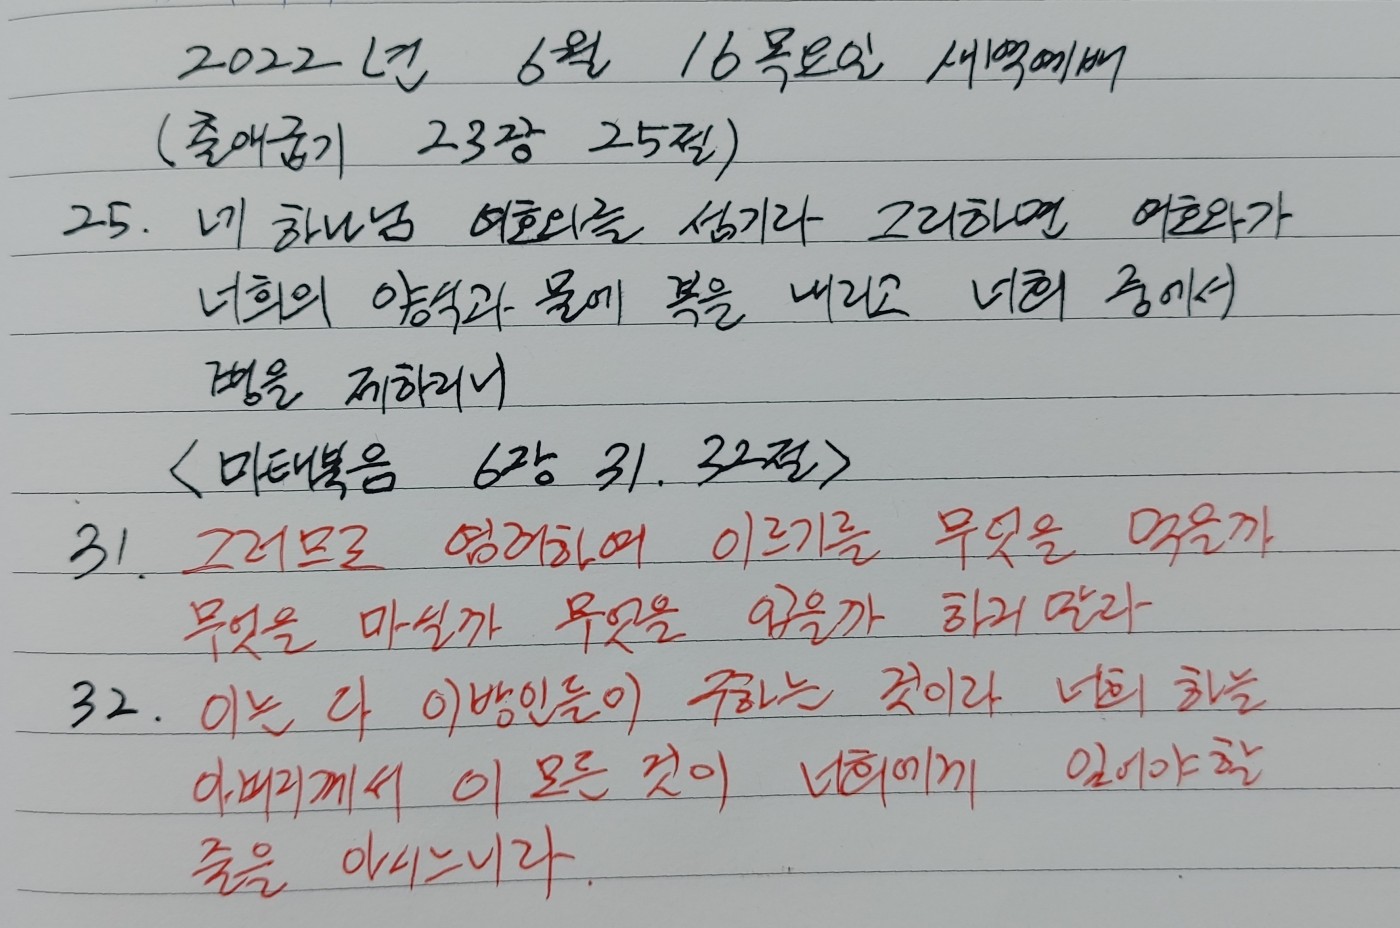 2022년 6월 16목요일 새벽예배
(출애굽기 23장 25절)
25. 네 하나님 여호와를 섬기라 그리하면 여호와가
너희의 양식과 물에 복을 내리고 너희 중에서
병을 제하리니
<마태복음 6장 31. 32절>
31. 그러므로 염려하여 이르기를 무엇을 먹을까
무엇을 마실까 무엇을 입을까 하지 말라
32. 이는 다 이방인들이 구하는 것이라 너희 하늘
아버지께서 이 모든 것이 너희에게 있어야 할
줄을 아시느니라.